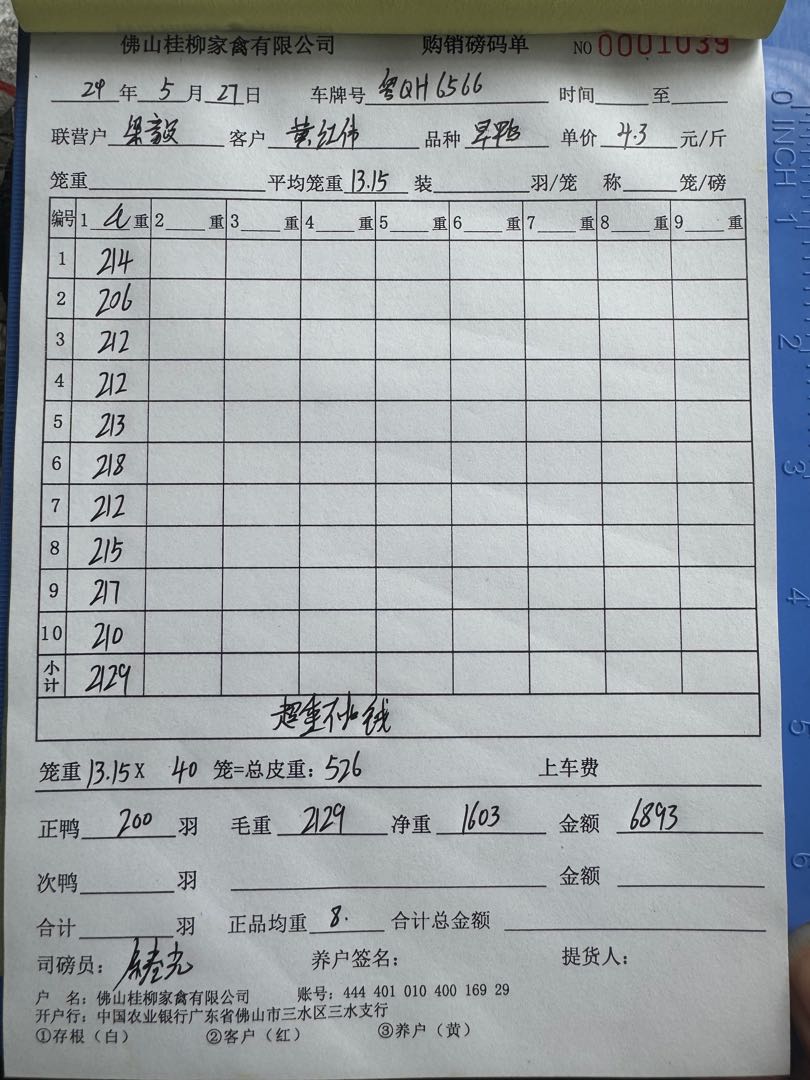 佛山桂柳家禽有限公司 购销磅码单 NO 0001039
24年5月27日 车牌号粤QH6566 时间 至
联营户梁毅 客户黄红伟 品种早鸭 单价4.3元/斤
笼重 平均笼重13.15装 羽/笼 称 笼/磅
编号 1 重 2 重 3 重 4 重 5 重 6 重 7 重 8 重 9 重
1 214
2 206
3 212
4 212
5 213
6 218
7 212
8 215
9 217
10 210
小计 2129
超重不出钱
笼重13.15X 40笼=总皮重:526 上车费
正鸭200羽 毛重2129净重1603 金额6893
次鸭 羽 金额
合计 羽 正品均重8. 合计总金额
司磅员: 养户签名: 提货人:
户 名:佛山桂柳家禽有限公司 账号:444 401 010 400 169 29
开户行:中国农业银行广东省佛山市三水区三水支行
①存根(白) ②客户(红) ③养户(黄)
0 INCH 1 2 3 4 5 6